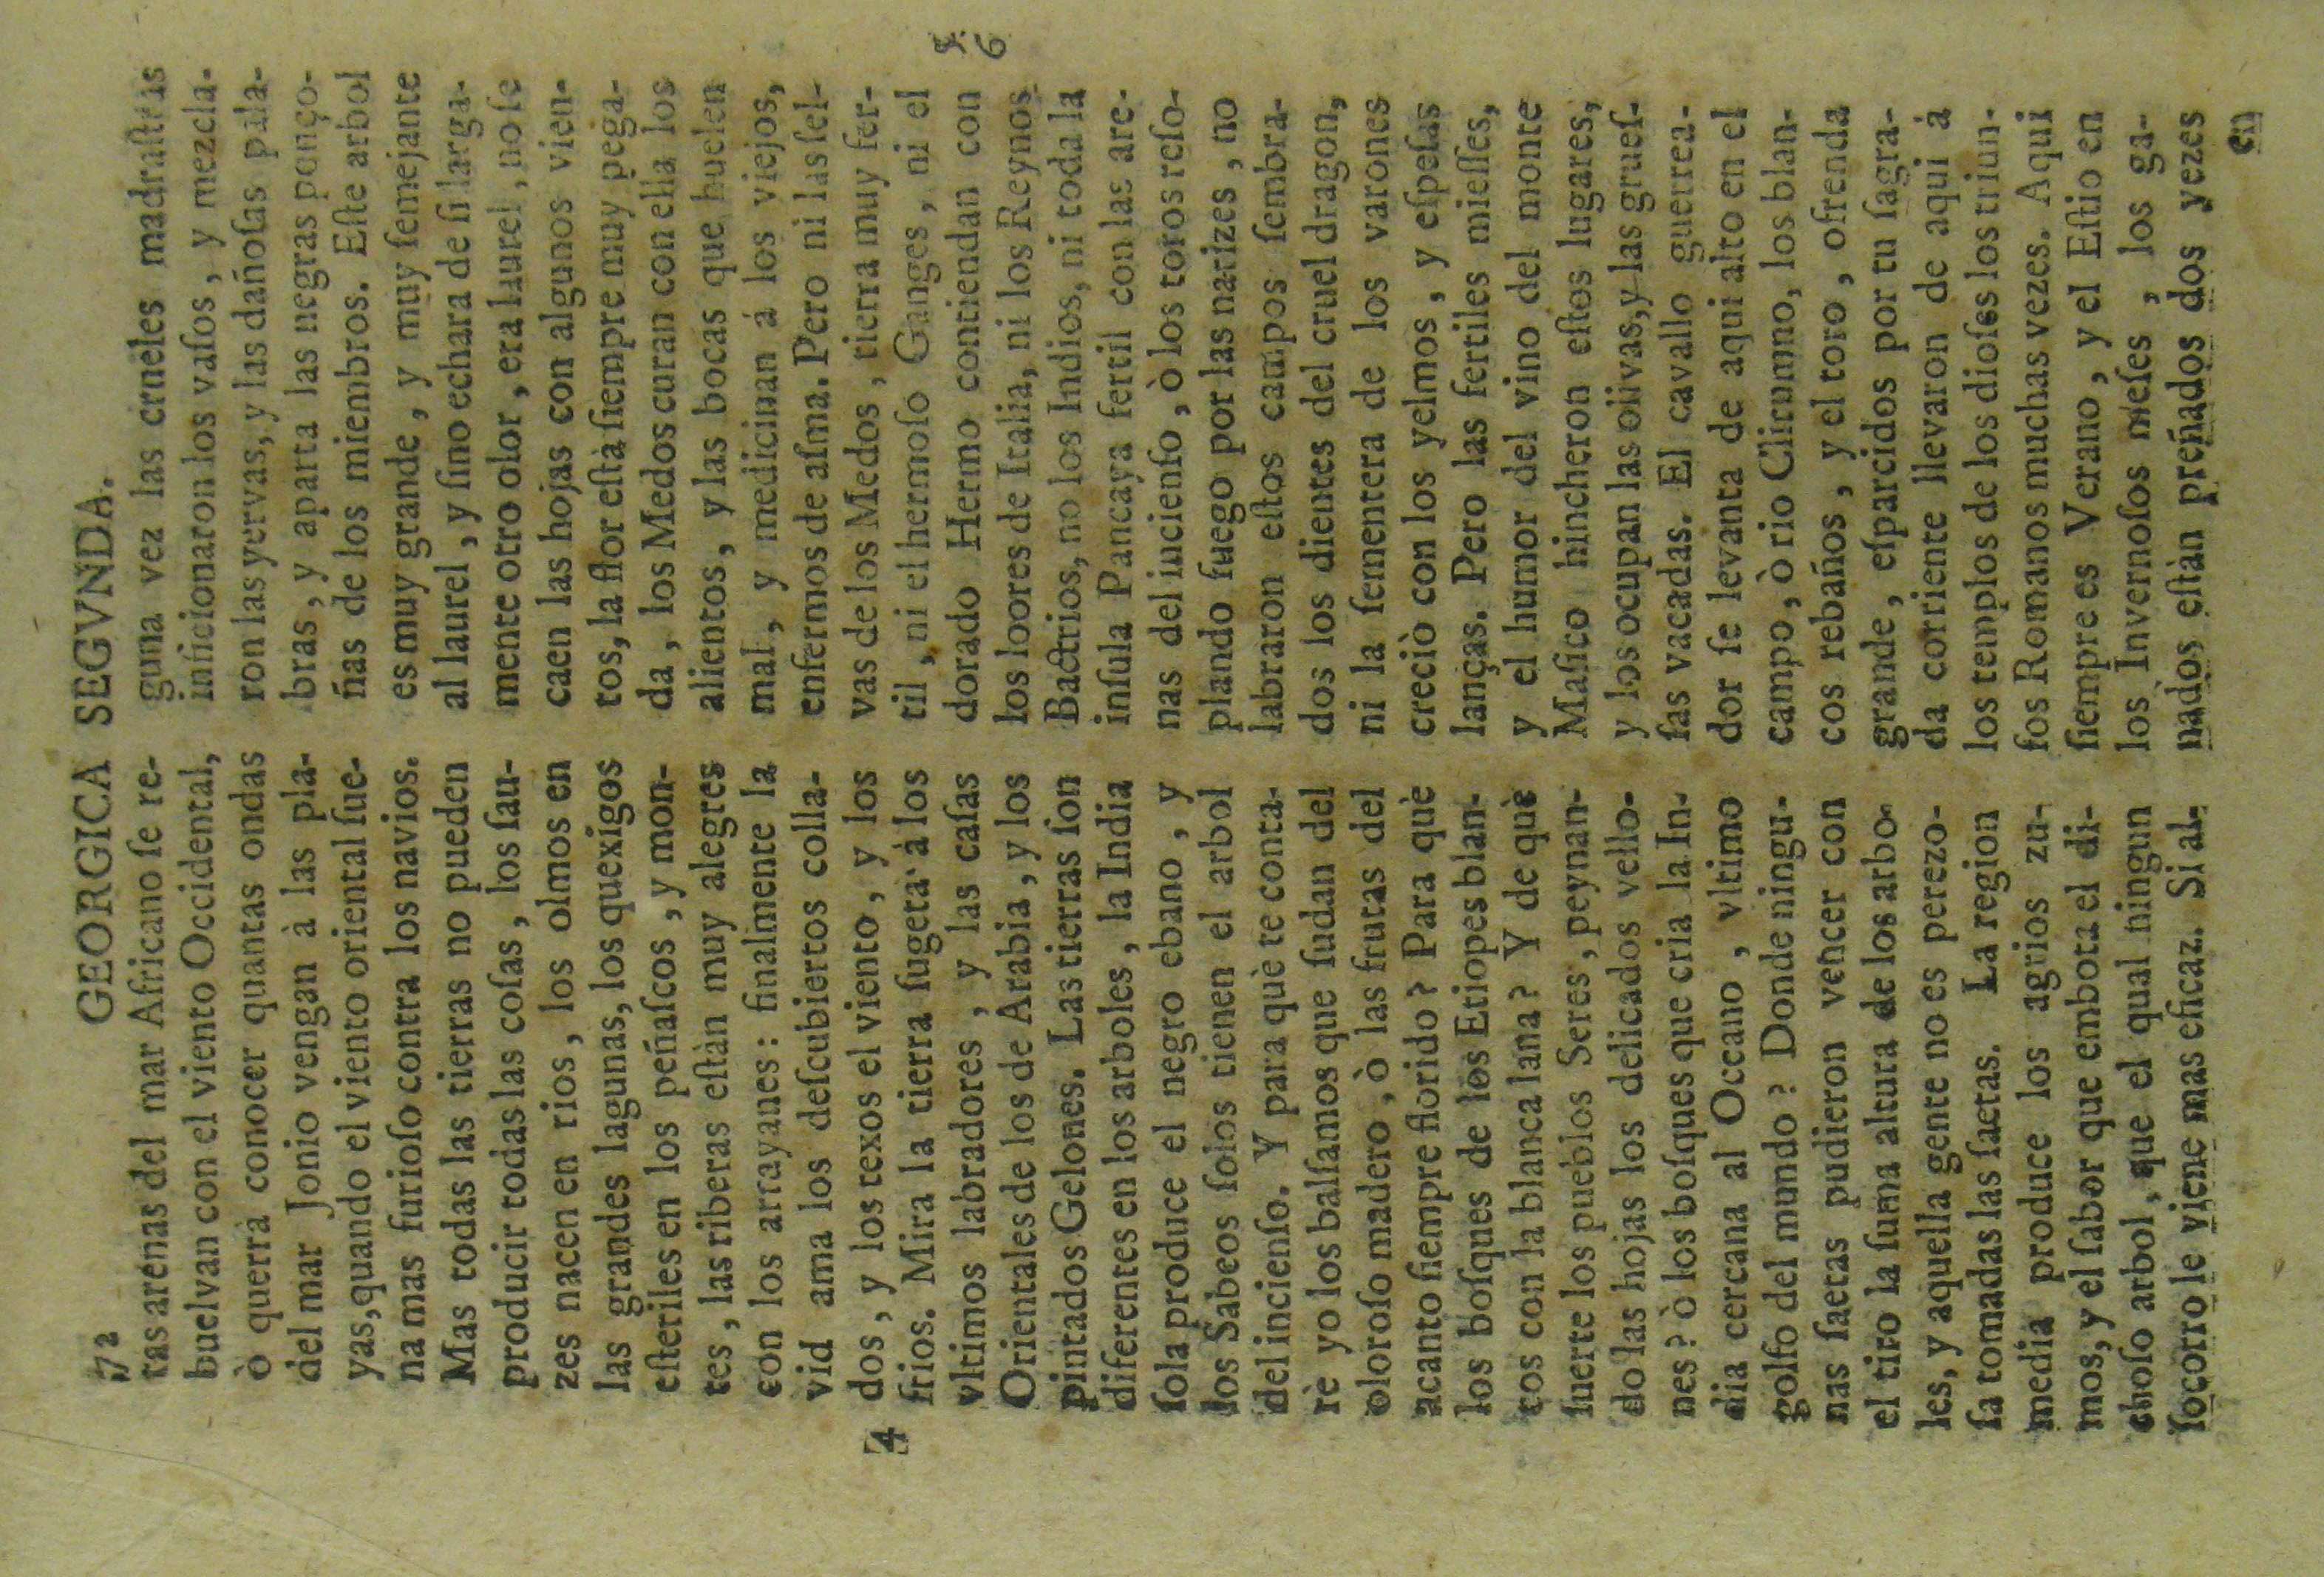 72
GEORGICA SEGVNDA.
tas arenas del mar Africano ſe re-
buelvan con el viento Occidental,
ò querrà conocer quantas ondas
del mar Jonio vengan à las pla-
yas, quando el viento oriental ſue-
na mas furioſo contra los navios.
Mas todas las tierras no pueden
producir todas las coſas, los ſau-
zes nacen en rios, los olmos en
las grandes lagunas, los quexigos
eſteriles en los peñaſcos, y mon-
tes, las riberas eſtàn muy alegres
con los arrayanes: finalmente la
vid ama los deſcubiertos colla-
4 dos, y los texos el viento, y los
frios. Mira la tierra ſugeta à los
vltimos labradores, y las caſas
Orientales de los de Arabia, y los
pintados Gelones. Las tierras ſon
diferentes en los arboles, la India
ſola produce el negro ebano, y
los Sabeos ſolos tienen el arbol
del incienſo. Y para què te conta-
rè yo los balſamos que ſudan del
oloroſo madero, ò las frutas del
acanto ſiempre florido? Para què
los boſques de los Etiopes blan-
cos con la blanca lana? Y de què
ſuerte los pueblos Seres, peynan-
do las hojas los delicados vello-
nes? ò los boſques que cria la In-
dia cercana al Occano, vltimo
golfo del mundo? Donde ningu-
nas ſaetas pudieron vencer con
el tiro la ſuma altura de los arbo-
les, y aquella gente no es perezo-
ſa tomadas las ſaetas. La region
media produce los agrios zu-
mos, y el ſabor que embota el di-
choſo arbol, que el qual ningun
ſocorro le viene mas eficaz. Si al-
guna vez las crueles madraſtas
inficionaron los vaſos, y mezcla-
ron las yervas, y las dañoſas pala-
bras, y aparta las negras ponço-
ñas de los miembros. Eſte arbol
es muy grande, y muy ſemejante
al laurel, y ſino echara de ſi larga-
mente otro olor, era laurel, no ſe
caen las hojas con algunos vien-
tos, la flor eſtà ſiempre muy pega-
da, los Medos curan con ella los
alientos, y las bocas que huelen
mal, y medicinan à los viejos,
enfermos de aſma. Pero ni las ſel-
vas de los Medos, tierra muy fer-
til, ni el hermoſo Ganges, ni el
dorado Hermo contiendan con
los loores de Italia, ni los Reynos
6
Bactrios, no los Indios, ni toda la
inſula Pancaya fertil con las are-
nas del incienſo, ò los toros reſo-
plando fuego por las narizes, no
labraron eſtos campos ſembra-
dos los dientes del cruel dragon,
ni la ſementera de los varones
creciò con los yelmos, y eſpeſas
lanças. Pero las fertiles mieſſes,
y el humor del vino del monte
Maſico hincheron eſtos lugares,
y los ocupan las olivas, y las grueſ-
ſas vacadas. El cavallo guerrea-
dor ſe levanta de aqui alto en el
campo, ò rio Clitumno, los blan-
cos rebaños, y el toro, ofrenda
grande, eſparcidos por tu ſagra-
da corriente llevaron de aqui à
los templos de los dioſes los triun-
fos Romanos muchas vezes. Aqui
ſiempre es Verano, y el Eſtio en
los Invernoſos meſes, los ga-
nados eſtàn preñados dos vezes
en